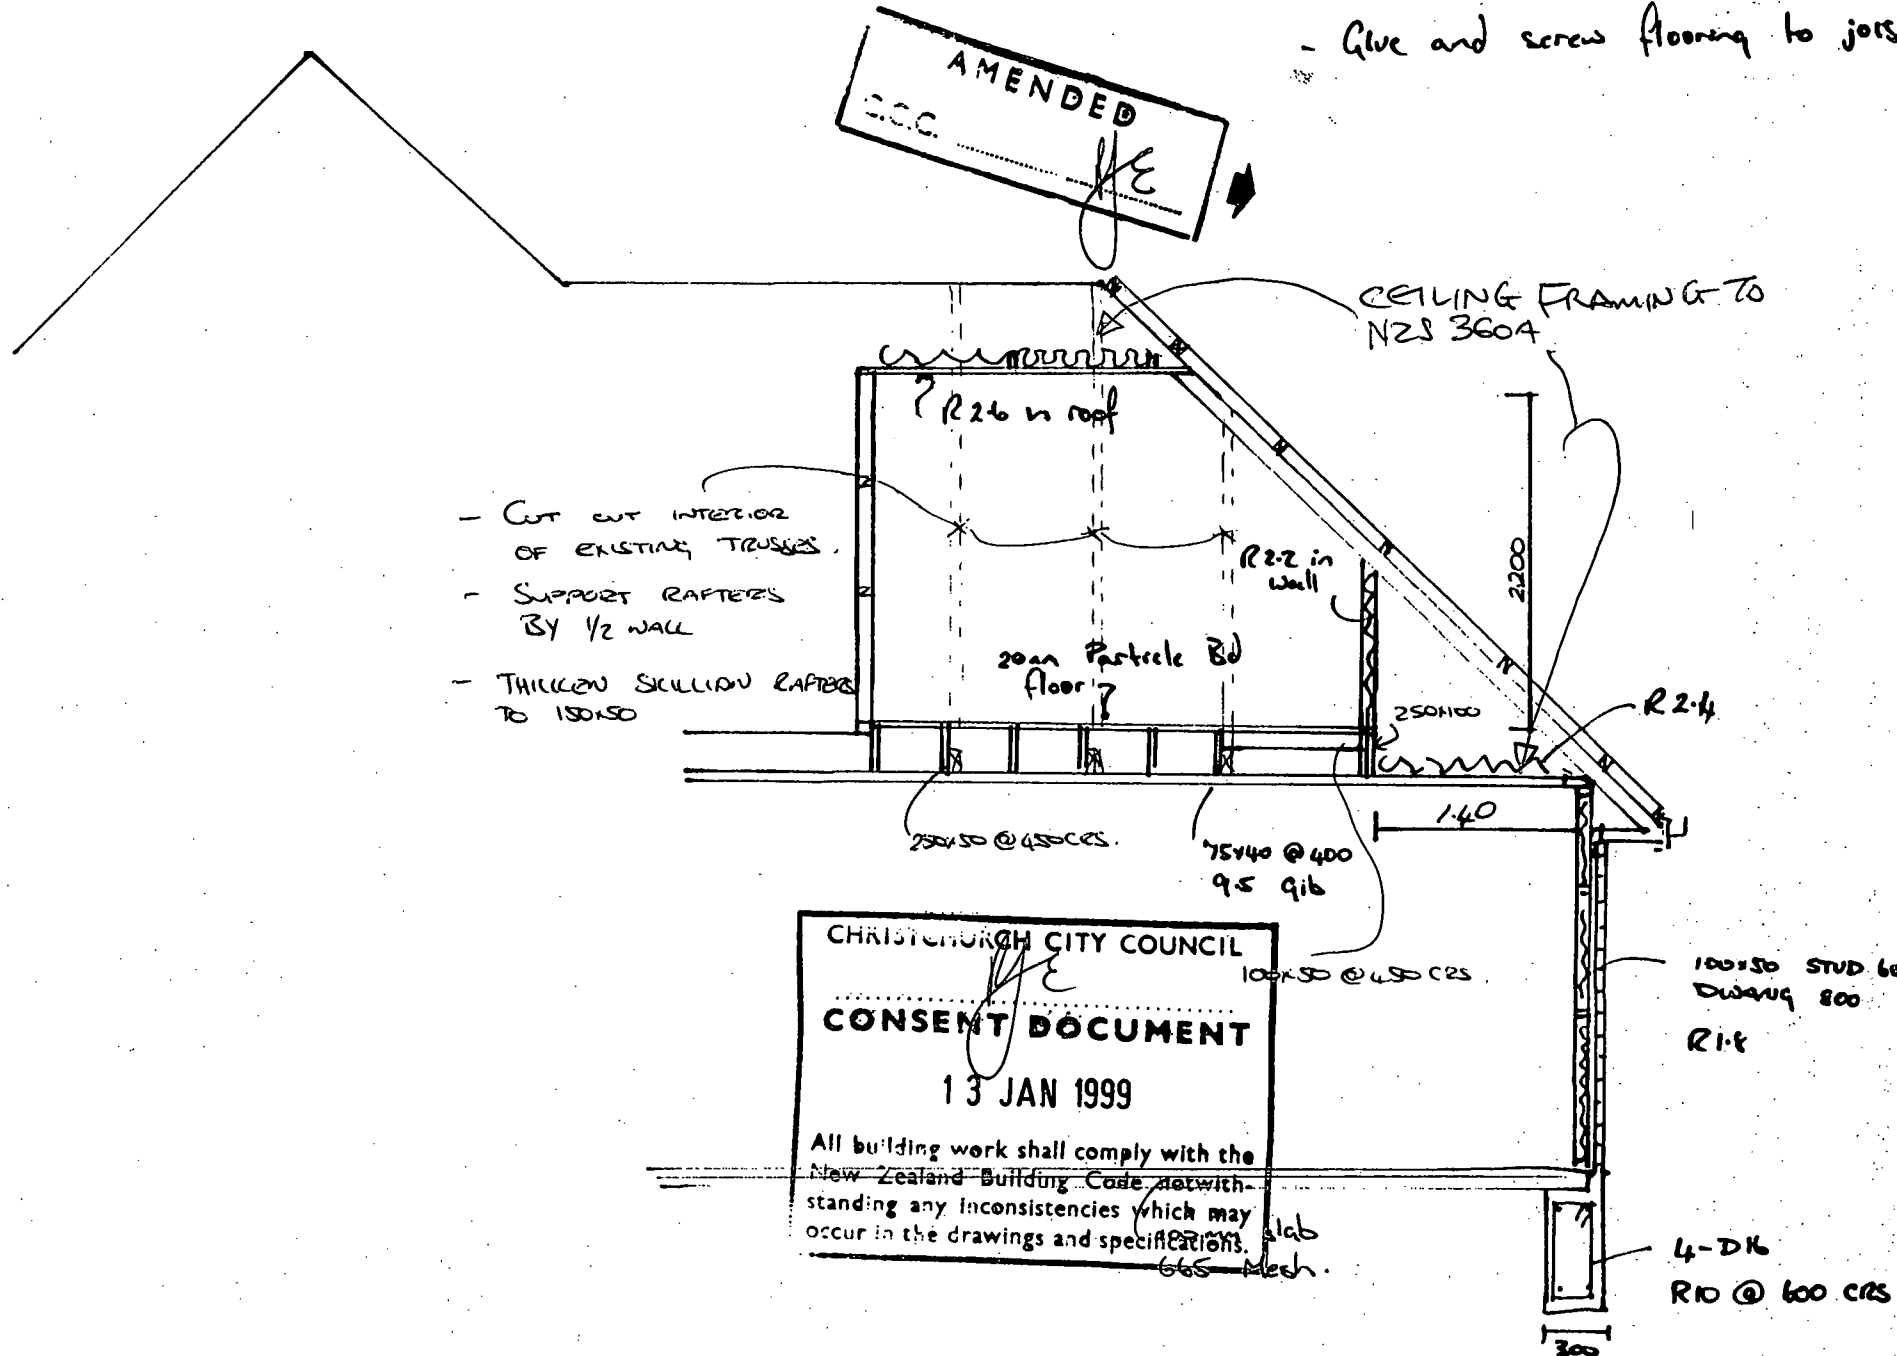 - Glue and screw flooring to
AMENDED
C.C.C.
CEILING FRAMING TO
NZS 3604
R2.6 in roof
- CUT OUT INTERIOR
OF EXISTING TRUSSES.
- SUPPORT RAFTERS
BY 1/2 WALL
- THICKEN SKILLION RAFTERS
TO 150x50
R2.2 in
wall
2200
20mm Particle Bd
floor
250x100
R2.4
1.40
250x50 @ 450 CRS.
75x40 @ 400
9.5 Gib
100x50 @ 450 CRS.
CHRISTCHURCH CITY COUNCIL
CONSENT DOCUMENT
13 JAN 1999
All building work shall comply with the
New Zealand Building Code notwith-
standing any inconsistencies which may
occur in the drawings and specifications.
slab
665 Mesh.
100x50 STUD
DWANG 800
R1.8
4-D16
R10 @ 600 CRS
300